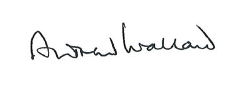 Andrew Wallard